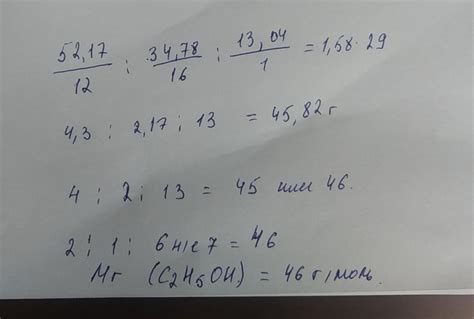 52,17/12 : 34,78/16 : 13,04/1 = 1,58 · 29
4,3 : 2,17 : 13 = 45,82 г
4 : 2 : 13 = 45 или 46.
2 : 1 : 6 = 46
Mr (C2H5OH) = 46 г/моль.